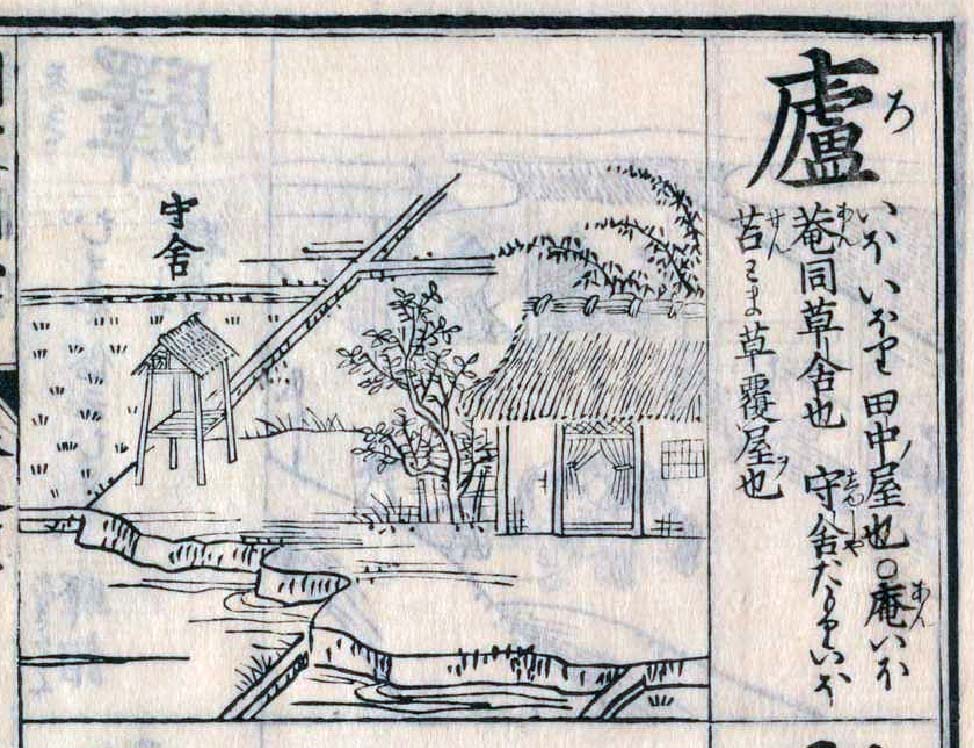 廬 ろ
いほ いほり 田中ノ屋也○庵あんいほ
菴あん同草舎也 守舎しゆしやたもりいほ
苫せんとま草ヲ覆レ屋ヲ也
守舎